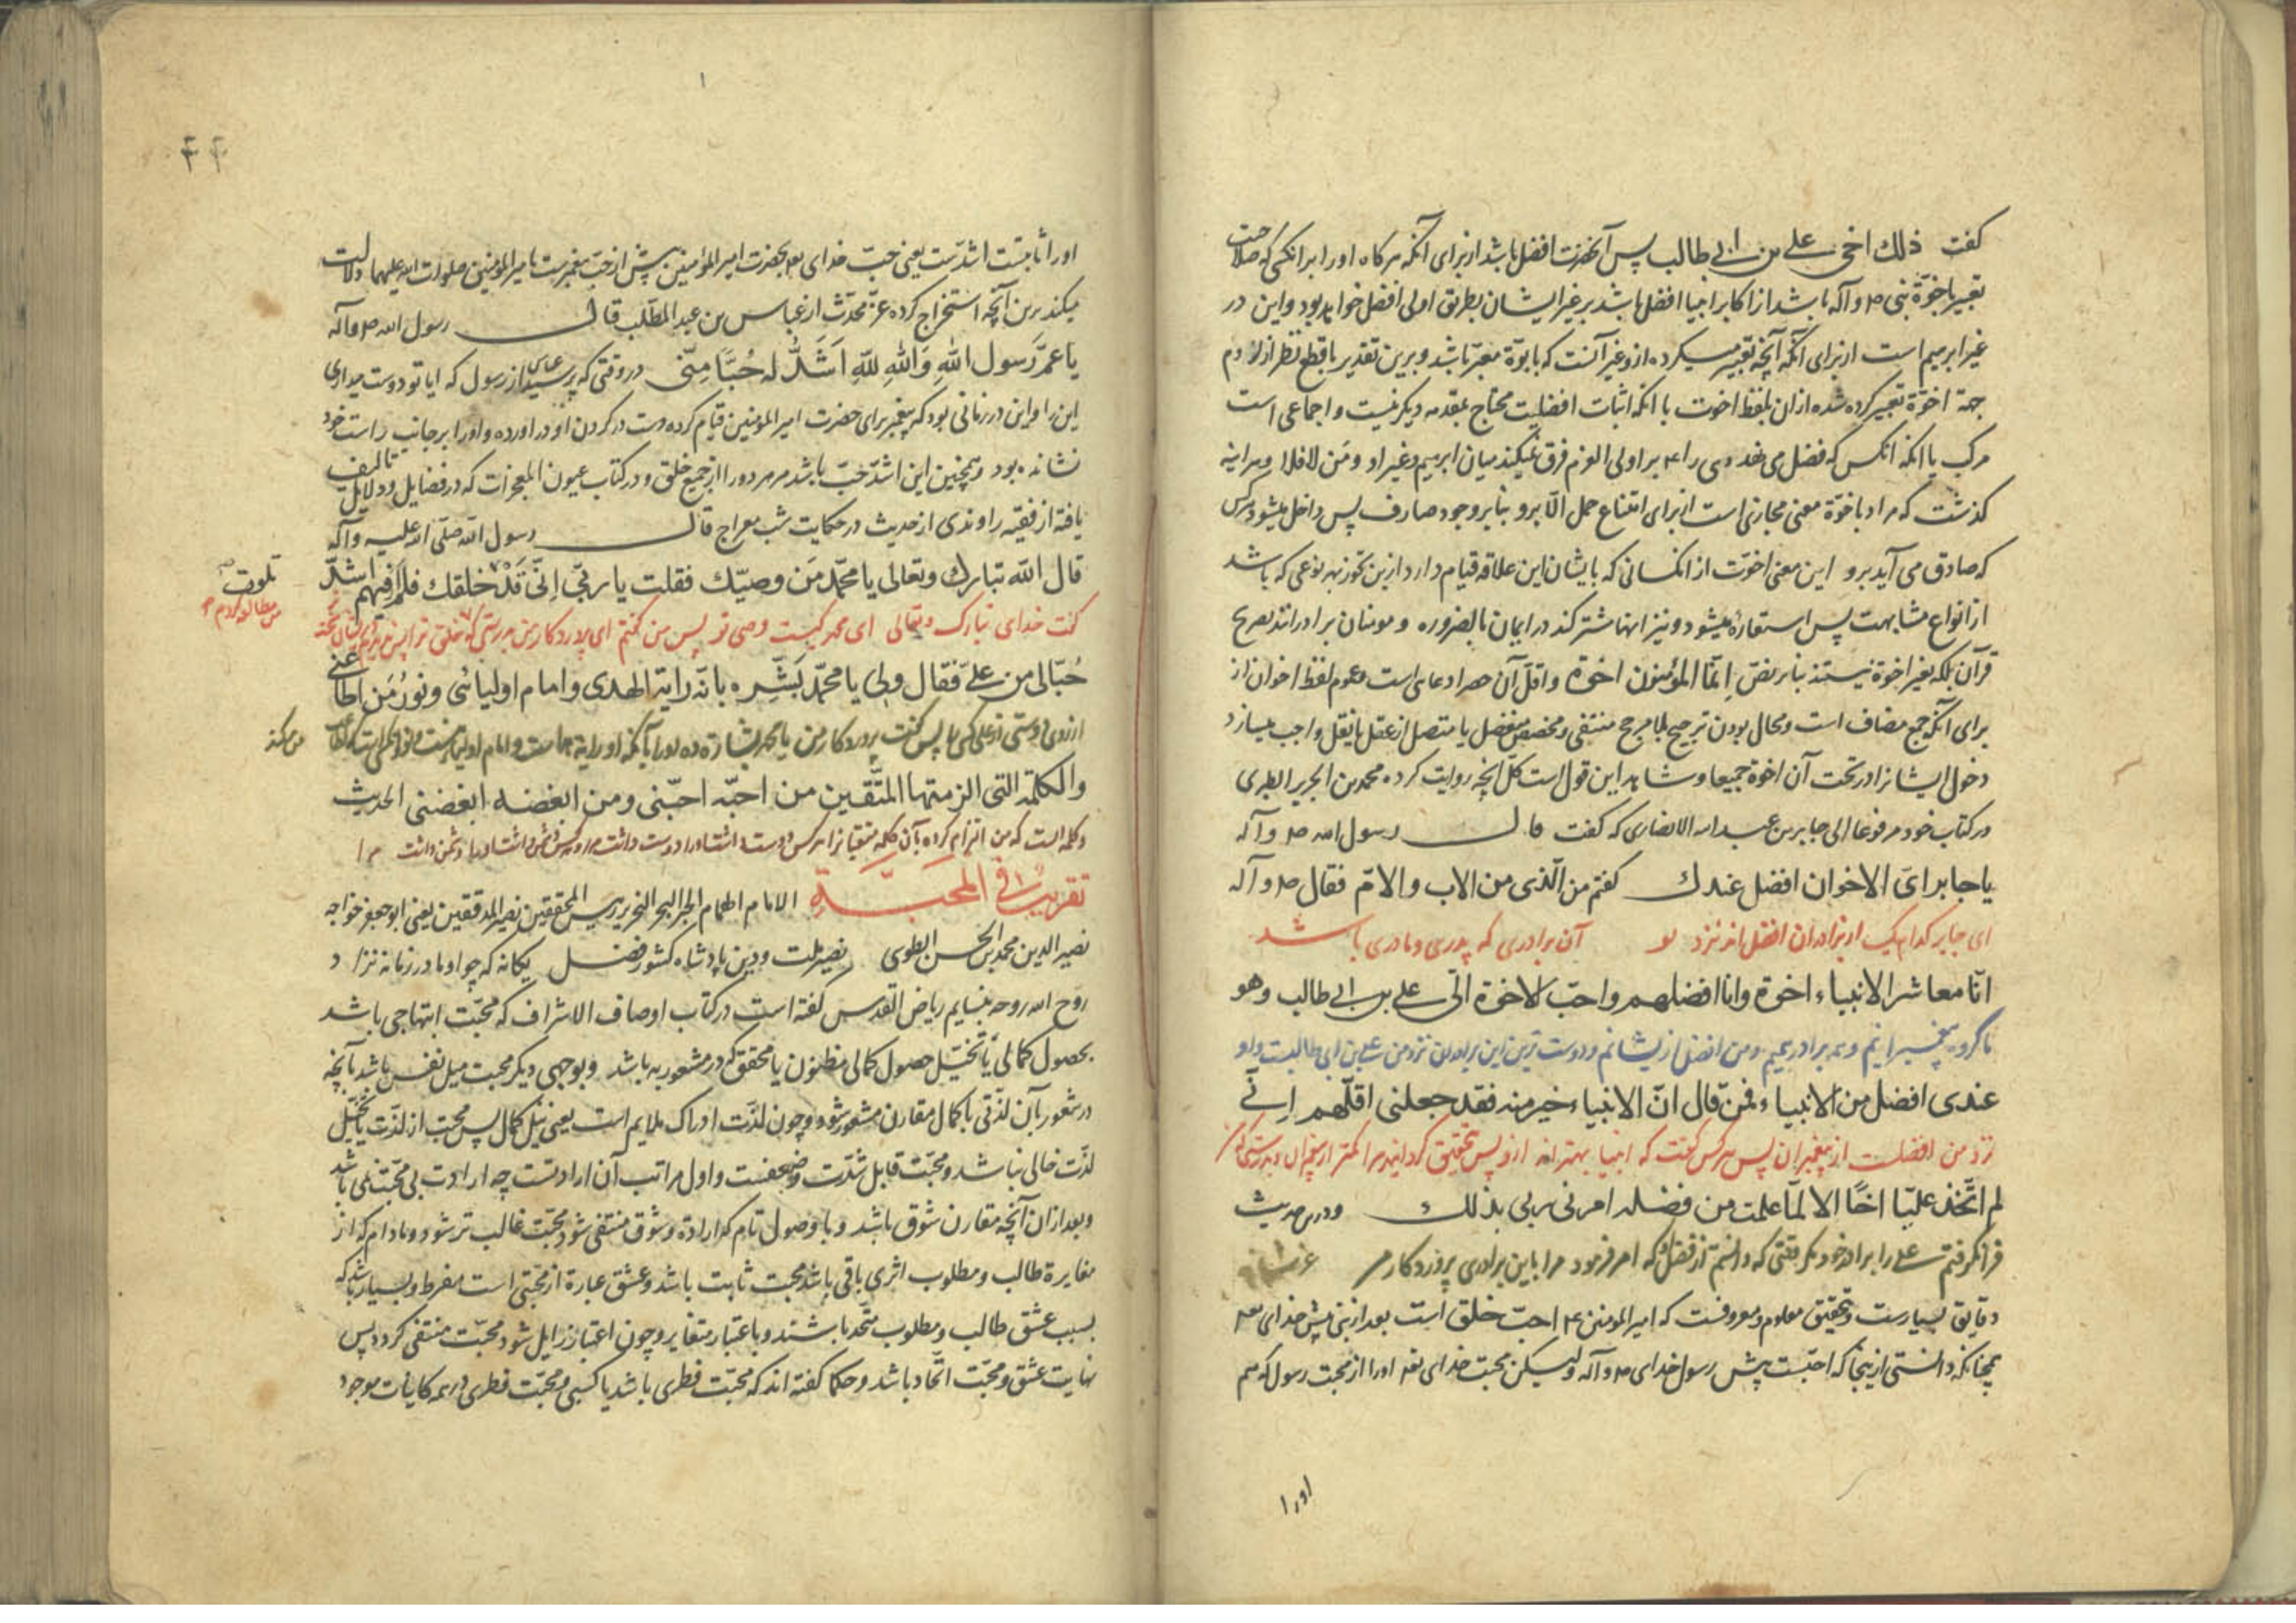 گفت ذلك اخی علی بن ابی طالب پس آنحضرت افضل باشد از برای آنکه هرکاه او را بر انکسی که صلاحیت
تعبیر باخوّة نبی ص و آله باشد از اکابر انبیا افضل باشد بر غیر ایشان بطریق اولی افضل خواهد بود و این در
غیر ابرهیم است از برای آنکه آنچه تعبیر میکرده ازو غیر آنست که بابوّة معبّر باشد و برین تقدیر با قطع نظر از لزوم
جهة اخوّة تعبیر کرده شده ازان بلفظ اخوت با انکه اثبات افضلیت محتاج بمقدمه دیکر نیست و اجماعی است
مرکب با انکه انکس که فضل می نهد وی را ع بر اولی العزم فرق نمیکند میان ابرهیم و غیر او و مَن لا فلا و هر اینه
کذشت که مراد باخوّة معنی مجازی است از برای امتناع حمل الّا برو بنابر وجود صارف پس داخل میشود هرکس
که صادق می آید برو این معنی اخوّت از انکسانی که بایشان این علاقه قیام دارد ازین تجوّز بهر نوعی که باشد
از انواع مشابهت پس استعاره میشود و نیز انها مشترکند در ایمان بالضروره و مومنان برادرانند بصریح
قرآن بلکه بغیر اخوة نیستند بنابر نصّ اِنّما المؤمنون اخوة و اقلّ آن حصر ادعای است و عموم لفظ اخوان از
برای آنکه جمع مضاف است و محال بودن ترجیح بلا مرجح منتفی و مخصص منفصل یا متصل از عقل یا نقل واجب میسازد
دخول ایشانرا در تحت آن اخوة جمیعا و شاهد این قول است کلّ آنچه روایت کرده محمد بن الجریر الطبری
در کتاب خود مرفوعا الی جابر بن عبد الله الانصاری که گفت قال رسول الله ص و آله
یا جابر ایّ الاخوان افضل عندك کفتم من الّذی من الاب والامّ فقال ص و آله
ای جابر کدام یک از برادران افضل اند نزد تو آن برادری که پدری و مادری باشد
انّا معاشر الانبیاء اخوة وانا افضلهم واحبّ الاخوة الیّ علی بن ابی طالب وهو
ما کروه پیغمبرانیم و همه برادریم و من افضل ازیشانم و دوست ترین این برادران نزد من علی بن ابی طالبست و او
عندی افضل من الانبیاء فمن قال انّ الانبیاء خیر منه فقد جعلنی اقلّهم اِنّی
نزد من افضلست از پیغمبران پس هرکس کفت که انبیا بهتراند ازو پس بتحقیق کردانید مرا کمتر از پیغمبران و بدرستی که
لم اتّخذ علیّا اخًا الا لمّا علمت من فضله امرنی ربی بذلك و درین حدیث
فرا نکرفتم علی را برادر خود مکر وقتی که دانستم از فضل او که امر فرمود مرا باین برادری پروردکار من
دقایق بسیارست و بتحقیق معلوم و معروفست که امیر المومنین ع احبّ خلق است بعد از نبی پیش خدای تعه
همچنانکه دانستی از ینجا که احبّست پیش رسول خدای ص و آله ولیکن محبت خدای تعه او را از محبت رسول که هم
او را
او را ثابتست اشدّست یعنی حبّ خدای تعه بحضرت امیر المؤمنین بیش از حبّ پیغمبرست بامیر المؤمنین صلوات الله علیهما دلالت
میکند برین آنچه استخراج کرده عزّ محدّث از عباس بن عبد المطّلب قال رسول الله ص و آله
یا عمّ رَسول اللهِ وَاللهِ لَلّهِ اَشَدُّ له حُبًّا مِنّی در وقتی که پرسید عباس از رسول که ایا تو دوست میداری
این را و این در زمانی بود که پیغمبر برای حضرت امیر المومنین قیام کرده دست در کردن او در اورده و او را بر جانب راست خود
نشانده بود و همچنین این اشدّ حبّ باشد مر هر دو را از جمیع خلق و در کتاب عیون المعجزات که در فضایل و دلایل تالیف
یافته از فقیه راوندی از حدیث در حکایت شب معراج قال رسول الله صلّی الله علیه وآله
قال الله تبارك وتعالی یا محمّد مَن وصیّك فقلت یا ربّی اِنّی قَدْ خلقك فلم فیهم اشدّ
بلوت ص
کفت خدای تبارک و تعالی ای محمد کیست وصی تو پس من کفتم ای پروردکار من بدرستی که خلق ترا
حُبّا لی من علیّ فقال ولی یا محمّد بَشّره بانّه رایة الهدی وامام اولیائی ونورُ مَن اطاعنی
من میکند
والکلمة التی الزمتها المتّقین من احبّه احبّنی ومن ابغضه ابغضنی الحدیث
و کلمه است که من الزام کرده ام آن کلمه متقیانرا هرکس دوست داشت او را دوست داشت مرا و هرکس دشمن داشت او را دشمن داشت مرا
تقریبٌ فی المحَبَّةِ الامام الهمام الحبر البحر النحریر رییس المحققین نصیر المدققین یعنی ابو جعفر خواجه
نصیر الدین محمد بن الحسن الطوسی نصیر ملت و دین پادشاه کشور فضل یکانه که چو او مادر زمانه نزاد
روح الله روحه بنسایم ریاض القدس کفته است در کتاب اوصاف الاشراف که محبّت ابتهاجی باشد
بحصول کمالی یا تخیّل حصول کمالی مظنون یا محقق که در مشعور به باشد و بوجهی دیکر محبت میل نفس باشد بآنچه
در شعور بآن لذّتی یا کمال مقارن مشعور شود و چون لذّت ادراک ملایم است یعنی نیل کمال پس محبت از لذّت یا تخیّل
لذّت خالی نباشد و محبّت قابل شدّت و ضعفست و اول مراتب آن ارادتست چه ارادت بی محبّت نمی باشد
و بعد ازان آنچه مقارن شوق باشد و با وصول تام که اراده و شوق منتفی شود محبّت غالب تر شود و مادام که از
مغایرة طالب و مطلوب اثری باقی باشد محبت ثابت باشد و عشق عبارة از محبّتی است مفرط و بسیار باشد که
بسبب عشق طالب و مطلوب متّحد باشند و باعتبار متغایر و چون اعتبار زایل شود محبّت منتفی کردد پس
نهایت عشق و محبّت اتّحاد باشد و حکما کفته اند که محبّت فطری باشد یا کسبی و محبّت فطری در همه کاینات موجود